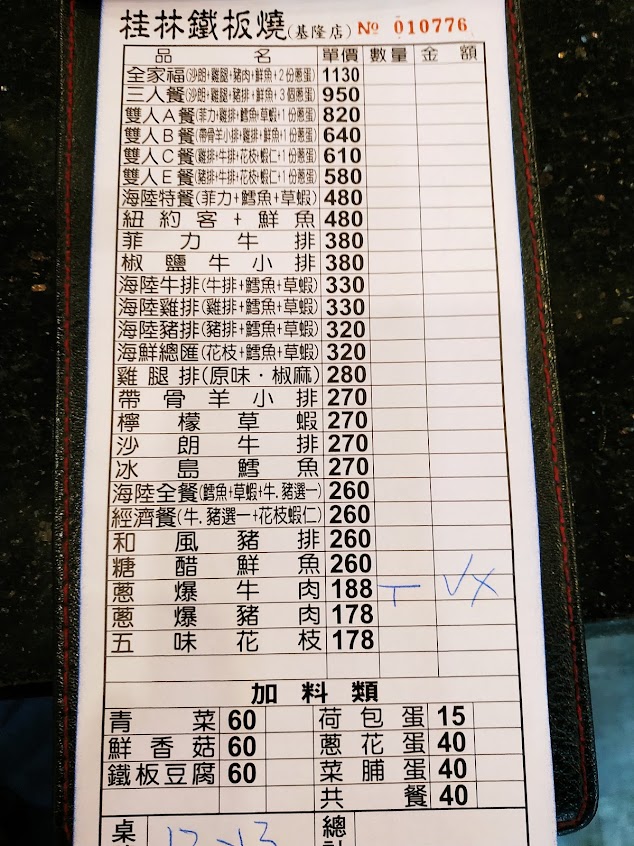 桂林鐵板燒(基隆店) № 010776
品名 單價 數量 金額
全家福(沙朗+雞腿+豬肉+鮮魚+2份蔥蛋) 1130
三人餐(沙朗+雞腿+豬排+鮮魚+3個蔥蛋) 950
雙人A餐(菲力+雞排+鱈魚+草蝦+1份蔥蛋) 820
雙人B餐(帶骨羊小排+雞排+鮮魚+1份蔥蛋) 640
雙人C餐(雞排+牛排+花枝+蝦仁+1份蔥蛋) 610
雙人E餐(豬排+牛排+花枝+蝦仁+1份蔥蛋) 580
海陸特餐(菲力+鱈魚+草蝦) 480
紐約客+鮮魚 480
菲力牛排 380
椒鹽牛小排 380
海陸牛排(牛排+鱈魚+草蝦) 330
海陸雞排(雞排+鱈魚+草蝦) 330
海陸豬排(豬排+鱈魚+草蝦) 320
海鮮總匯(花枝+鱈魚+草蝦) 320
雞腿排(原味·椒麻) 280
帶骨羊小排 270
檸檬草蝦 270
沙朗牛排 270
冰島鱈魚 270
海陸全餐(鱈魚+草蝦+牛.豬選一) 260
經濟餐(牛.豬選一+花枝蝦仁) 260
和風豬排 260
糖醋鮮魚 260
蔥爆牛肉 188
蔥爆豬肉 178
五味花枝 178
加料類
青菜 60 荷包蛋 15
鮮香菇 60 蔥花蛋 40
鐵板豆腐 60 菜脯蛋 40
共餐 40
桌 總